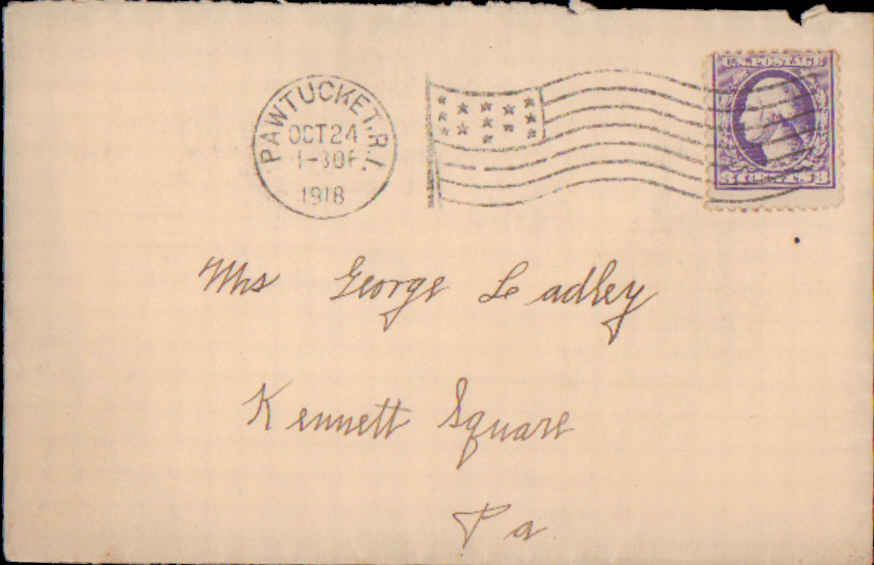 PAWTUCKET, R.I.
OCT 24
1-30P.
1918
U.S. POSTAGE
3 CENTS 3
Mrs George Leadley
Kennett Square
Pa